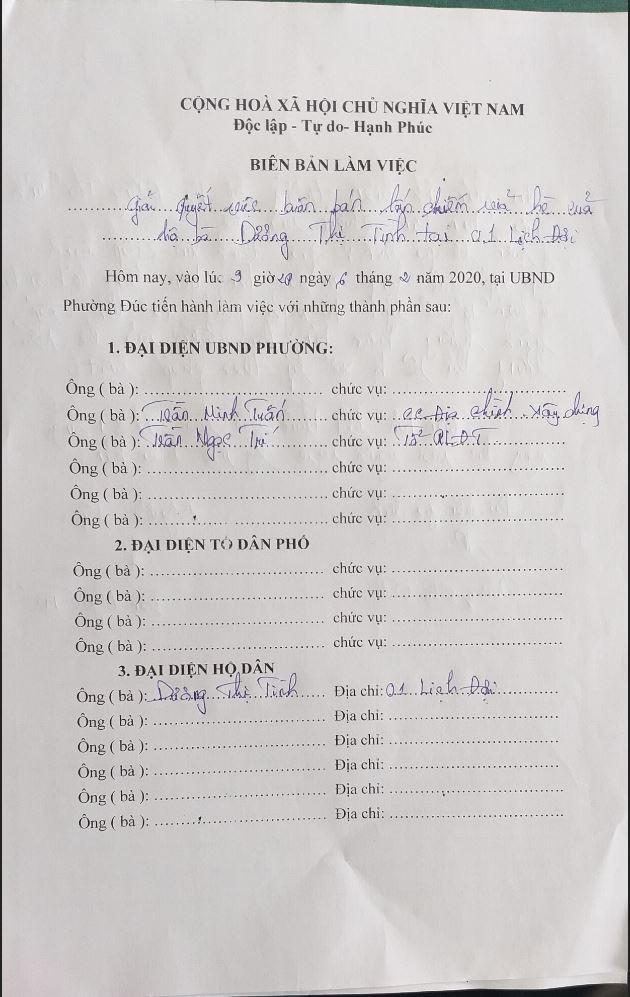 CỘNG HOÀ XÃ HỘI CHỦ NGHĨA VIỆT NAM
Độc lập - Tự do- Hạnh Phúc
BIÊN BẢN LÀM VIỆC
Giải quyết việc buôn bán lấn chiếm vỉa hè của
hộ bà Dương Thị Tình tại 01 Lịch Đợi
Hôm nay, vào lúc 9 giờ ngày 6 tháng 2 năm 2020, tại UBND
Phường Đúc tiến hành làm việc với những thành phần sau:
1. ĐẠI DIỆN UBND PHƯỜNG:
Ông ( bà ): chức vụ:
Ông ( bà ): Trần Minh Tuấn chức vụ: CC Địa chính Xây dựng
Ông ( bà ): Trần Ngọc Trí chức vụ: Tổ QLĐT
Ông ( bà ): chức vụ:
Ông ( bà ): chức vụ:
Ông ( bà ): chức vụ:
2. ĐẠI DIỆN TỔ DÂN PHỐ
Ông ( bà ): chức vụ:
Ông ( bà ): chức vụ:
Ông ( bà ): chức vụ:
Ông ( bà ): chức vụ:
3. ĐẠI DIỆN HỘ DÂN
Ông ( bà ): Dương Thị Tình Địa chỉ: 01 Lịch Đợi
Ông ( bà ): Địa chỉ:
Ông ( bà ): Địa chỉ:
Ông ( bà ): Địa chỉ:
Ông ( bà ): Địa chỉ:
Ông ( bà ): Địa chỉ: